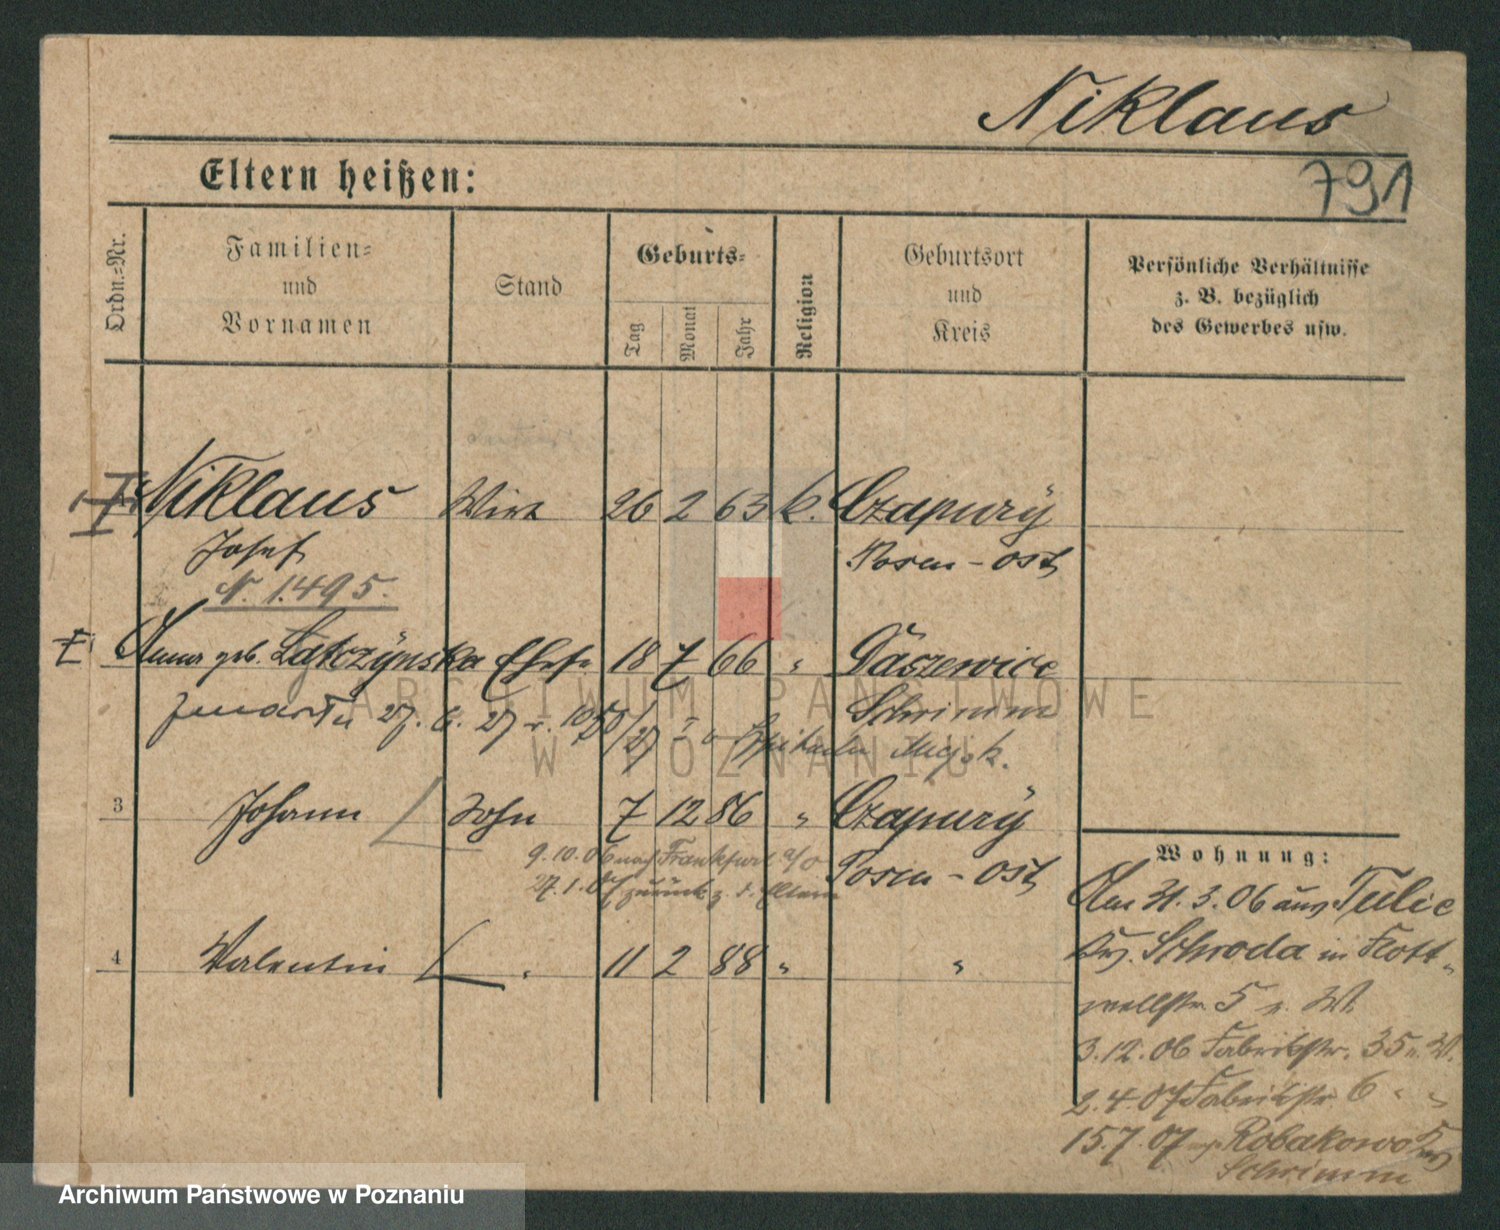 Niklaus
791
Eltern heißen:
Ordn.-Nr.
Familien-
und
Vornamen
Stand
Geburts-
Tag
Monat
Jahr
Religion
Geburtsort
und
Kreis
Persönliche Verhältnisse
z. B. bezüglich
des Gewerbes usw.
Niklaus Wirt 26 2 63 k. Czapury
Josef Posen-Ost
N. 1495.
Anna geb. Latczynska Ehefr 18 7 66 " Daszewice
27. 6. 27 Schrimm
3 Johann Sohn 7 12 86 " Czapury
9.10.06 nach Frankfurt a/o Posen-Ost
27.1.07 zurück z. d. Eltern
4 Valentin " 11 2 88 " "
Wohnung:
Am 31.3.06 aus Tulce
Krs. Schroda in Flott-
wellstr. 5 b. W.
3.12.06 Fabrikstr. 35 b. W.
2.4.07 Fabrikstr 6 " "
15.7.07 Robakowo Krs
Schrimm
ARCHIWUM PAŃSTWOWE
W POZNANIU
Archiwum Państwowe w Poznaniu